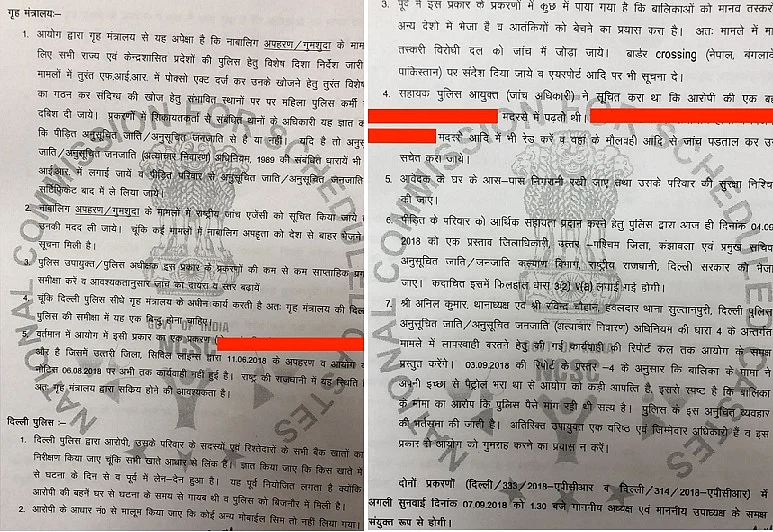 गृह मंत्रालयः-
1. आयोग द्वारा गृह मंत्रालय से यह अपेक्षा है कि नाबालिग अपहरण/गुमशुदा के माम
लिए सभी राज्य एवं केन्द्रशासित प्रदेशों की पुलिस हेतु विशेष दिशा निर्देश जारी
मामलों में तुरंत एफ.आई.आर. में पोक्सो एक्ट दर्ज कर उनके खोजने हेतु तुरंत विशेष
का गठन कर संदिग्ध की खोज हेतु संभावित स्थानों पर पर महिला पुलिस कर्मी
दबिश दी जाये। प्रकरणों में शिकायतकर्ता से संबंधित थानों के अधिकारी यह ज्ञात क
कि पीड़ित अनुसूचित जाति/अनुसूचित जनजाति से है या नहीं। यदि है तो अनुसू
जाति/अनुसूचित जनजाति (अत्याचार निवारण) अधिनियम, 1989 की संबंधित धारायें भी
आई.आर. में लगाई जायें व पीड़ित परिवार से अनुसूचित जाति/अनुसूचित जनजाति
सर्टिफिकेट बाद में ले लिया जाये।
2. नाबालिग अपहरण/गुमशुदा के मामलों में राष्ट्रीय जांच एजेंसी को सूचित किया जाये
उनकी मदद ली जाये। चूंकि कई मामलों में नाबालिग अपहृता को देश से बाहर भेजने
सूचना मिली है।
3. पुलिस उपायुक्त/पुलिस अधीक्षक इस प्रकार के प्रकरणों की कम से कम साप्ताहिक प्रग
समीक्षा करे व आवश्यकतानुसार जांच का दायरा व स्तर बढ़ायें
4. चूंकि दिल्ली पुलिस सीधे गृह मंत्रालय के अधीन कार्य करती है अतः गृह मंत्रालय की दिल्
पुलिस की समीक्षा में यह एक बिन्दु होना चाहिए।
5. वर्तमान में आयोग में इसी प्रकार का एक प्रकरण
और है जिसमें उत्तरी जिला, सिविल लाईन्स द्वारा 11.06.2018 के अपहरण व आयोग
नोटिस 06.08.2018 पर अभी तक कार्यवाही नहीं हुई है। राष्ट्र की राजधानी में यह स्थिति
अतः गृह मंत्रालय द्वारा सक्रिय होने की आवश्यकता है।
दिल्ली पुलिस :–
1. दिल्ली पुलिस द्वारा आरोपी, उसके परिवार के सदस्यों एवं रिश्तेदारों के सभी बैंक खातों का
निरीक्षण किया जाए चूंकि सभी खाते आधार से लिंक है। ज्ञात किया जाए कि किस खाते में
से घटना के दिन से व पूर्व में लेन-देन हुआ है। यह पूर्व नियोजित लगता है क्योंकि
आरोपी की बहनें घर से घटना के समय से गायब थी व पुलिस को बिजनौर में मिली है।
2. आरोपी के आधार नं0 से मालूम किया जाए कि कोई अन्य मोबाईल सिम तो नहीं लिया गया।
3. पूर्व में इस प्रकार के प्रकरणों में कुछ में पाया गया है कि बालिकाओं को मानव तस्कर
अन्य देशों में भेजा है व आतंकियों को बेचने का प्रयास करा है। अतः मामले में मा
तस्करी विरोधी दल को जांच में जोड़ा जाये। बार्डर crossing (नेपाल, बंगलादे
पाकिस्तान) पर संदेश दिया जाये व एयरपोर्ट आदि पर भी सूचना दे।
4. सहायक पुलिस आयुक्त (जांच अधिकारी) ने सूचित करा था कि आरोपी की एक बह
मदरसे में पढ़ती थी।
मदरसे आदि में भी रेड करें व वहां के मौलवी आदि से जांच पडताल कर उन
सचेत करा जाये।
5. आवेदक के घर के आस-पास निगरानी रखी जाए तथा उराके परिवार की सुरक्षा निश्चि
की जाए।
6. पीड़ित के परिवार को आर्थिक सहायता प्रदान करने हेतु पुलिस द्वारा आज ही दिनांक 04.09
2018 को एक प्रस्ताव जिलाधिकारी, उत्तर -पश्चिम जिला, कंझावला एवं प्रमुख सचिव
अनुसूचित जाति/जनजाति कल्याण विभाग, राष्ट्रीय राजधानी, दिल्ली सरकार को भेजा
जाए। कदाचित इसमें फिलहाल धारा 3(2) V(a) लगाई गई होगी।
7. श्री अनिल कुमार, थानाध्यक्ष एवं श्री रविन्द्र चौहान, हवलदार थाना सुल्तानपुरी, दिल्ली पुलिस
अनुसूचित जाति/अनुसूचित जनजाति (अत्याचार निवारण) अधिनियम की धारा 4 के अन्तर्गत
मामले में लापरवाही बरतने हेतु की गई कार्यवाही की रिपोर्ट कल तक आयोग के समक्ष
प्रस्तुत करेंगे। 03.09.2018 की रिपोर्ट के प्रस्तर -4 के अनुसार कि बालिका के मामा ने
अपनी इच्छा से पैट्रोल भरा था से आयोग को कड़ी आपत्ति है, इससे स्पष्ट है कि बालिका
के मामा का आरोप कि पुलिस पैसे मांग रही थी सत्य है। पुलिस के इस अनुचित व्यवहार
की भर्त्सना की जाती है। अतिरिक्त उपायुक्त एक वरिष्ठ एवं जिम्मेदार अधिकारी हैं व इस
प्रकार से आयोग को गुमराह करने का प्रयास न करें।
दोनों प्रकरणों (दिल्ली/333/2018-एपीसीआर व दिल्ली/314/2018-एपीसीआर) में
अगली सुनवाई दिनांक 07.09.2018 को 1.30 बजे माननीय अध्यक्ष एवं माननीय उपाध्यक्ष के समक्ष
संयुक्त रूप से होगी।
NATIONAL COMMISSION FOR SCHEDULED CASTES
GOVT OF INDIA
NCSC
NATIONAL COMMISSION FOR SCHEDULED CASTES
NCSC